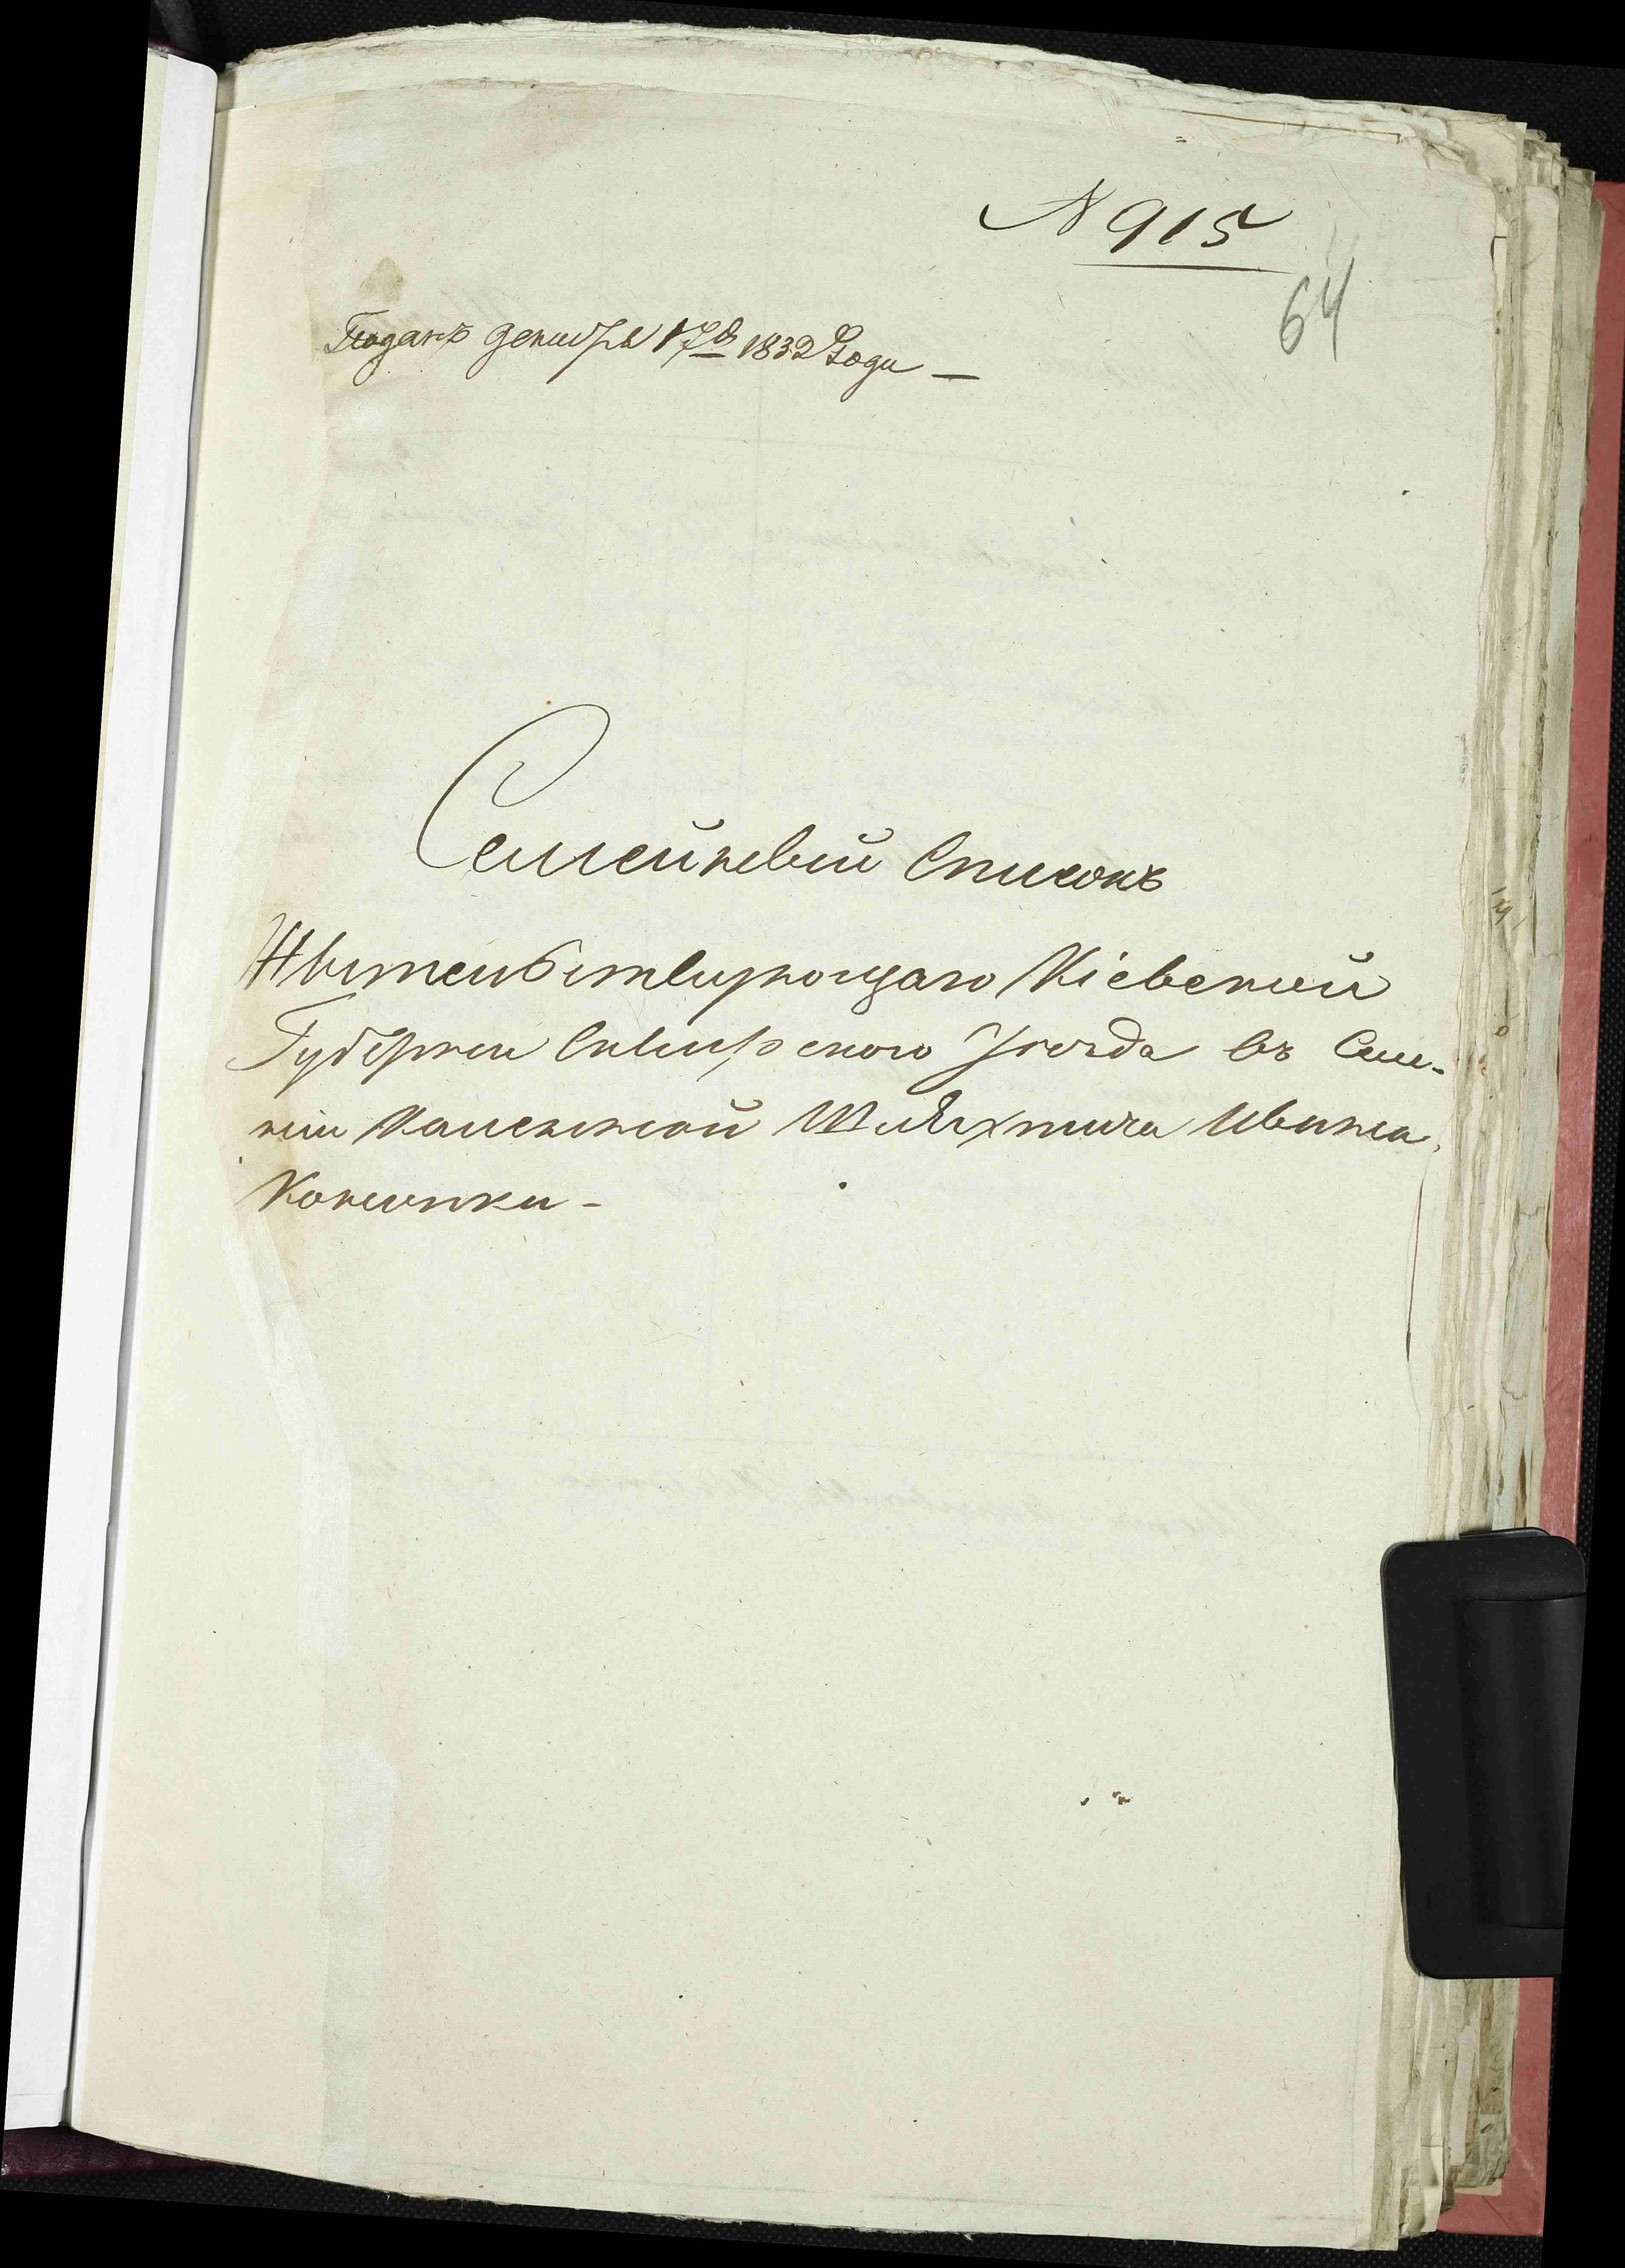 N 915
64
Поданъ декабря 17го 1832 Года —
Семейный Списокъ
Жытельствующаго Кіевской
Губерніи Сквирского Уезда въ Сели-
ніи Каменной Шляхтича Ивана